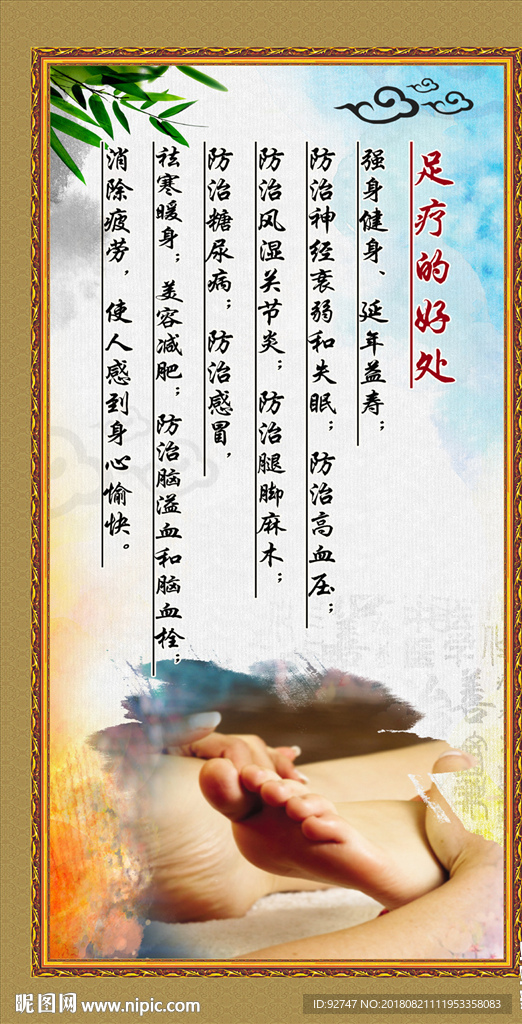 足疗的好处
强身健身、延年益寿；
防治神经衰弱和失眠；防治高血压；
防治风湿关节炎；防治腿脚麻木；
防治糖尿病；防治感冒，
祛寒暖身；美容减肥；防治脑溢血和脑血栓；
消除疲劳，使人感到身心愉快。
昵图网 www.nipic.com
ID:92747 NO:20180821111953358083